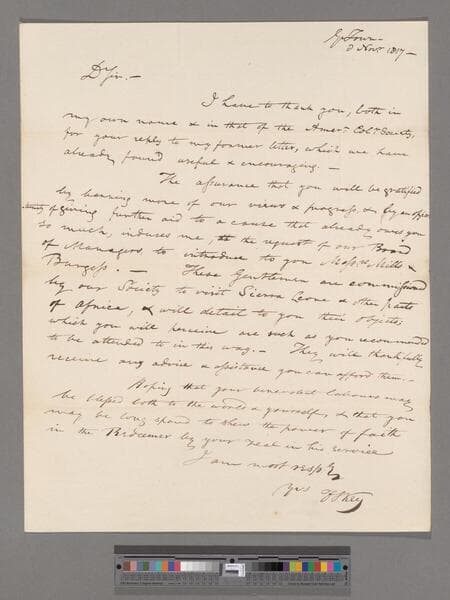 Go Town –
8 Novr 1817 –
Dr Sir. –
I have to thank you, both in
my own name & in that of the Amern Coln Society,
for your reply to my former letter, which we have
already found useful & encouraging. –
The assurance that you will be gratified
by hearing more of our views & progress, & by an oppor
tunity of giving further aid to a cause that already owes you
so much, induces me, at the request of our Board
of Managers, to introduce to you Messrs Mills &
Burgess. – These Gentlemen are commissioned
by our Society to visit Sierra Leone & other parts
of Africa, & will detail to you their objects;
which you will perceive are such as you recommended
to be attended to in this way. – They will thankfully
receive any advice & assistance you can afford them. –
Hoping that your benevolent labours may
be blessed both to the world & yourself, & that you
may be long spared to shew the power of faith
in the Redeemer by your zeal in his service
I am most respy
Yrs F S Key